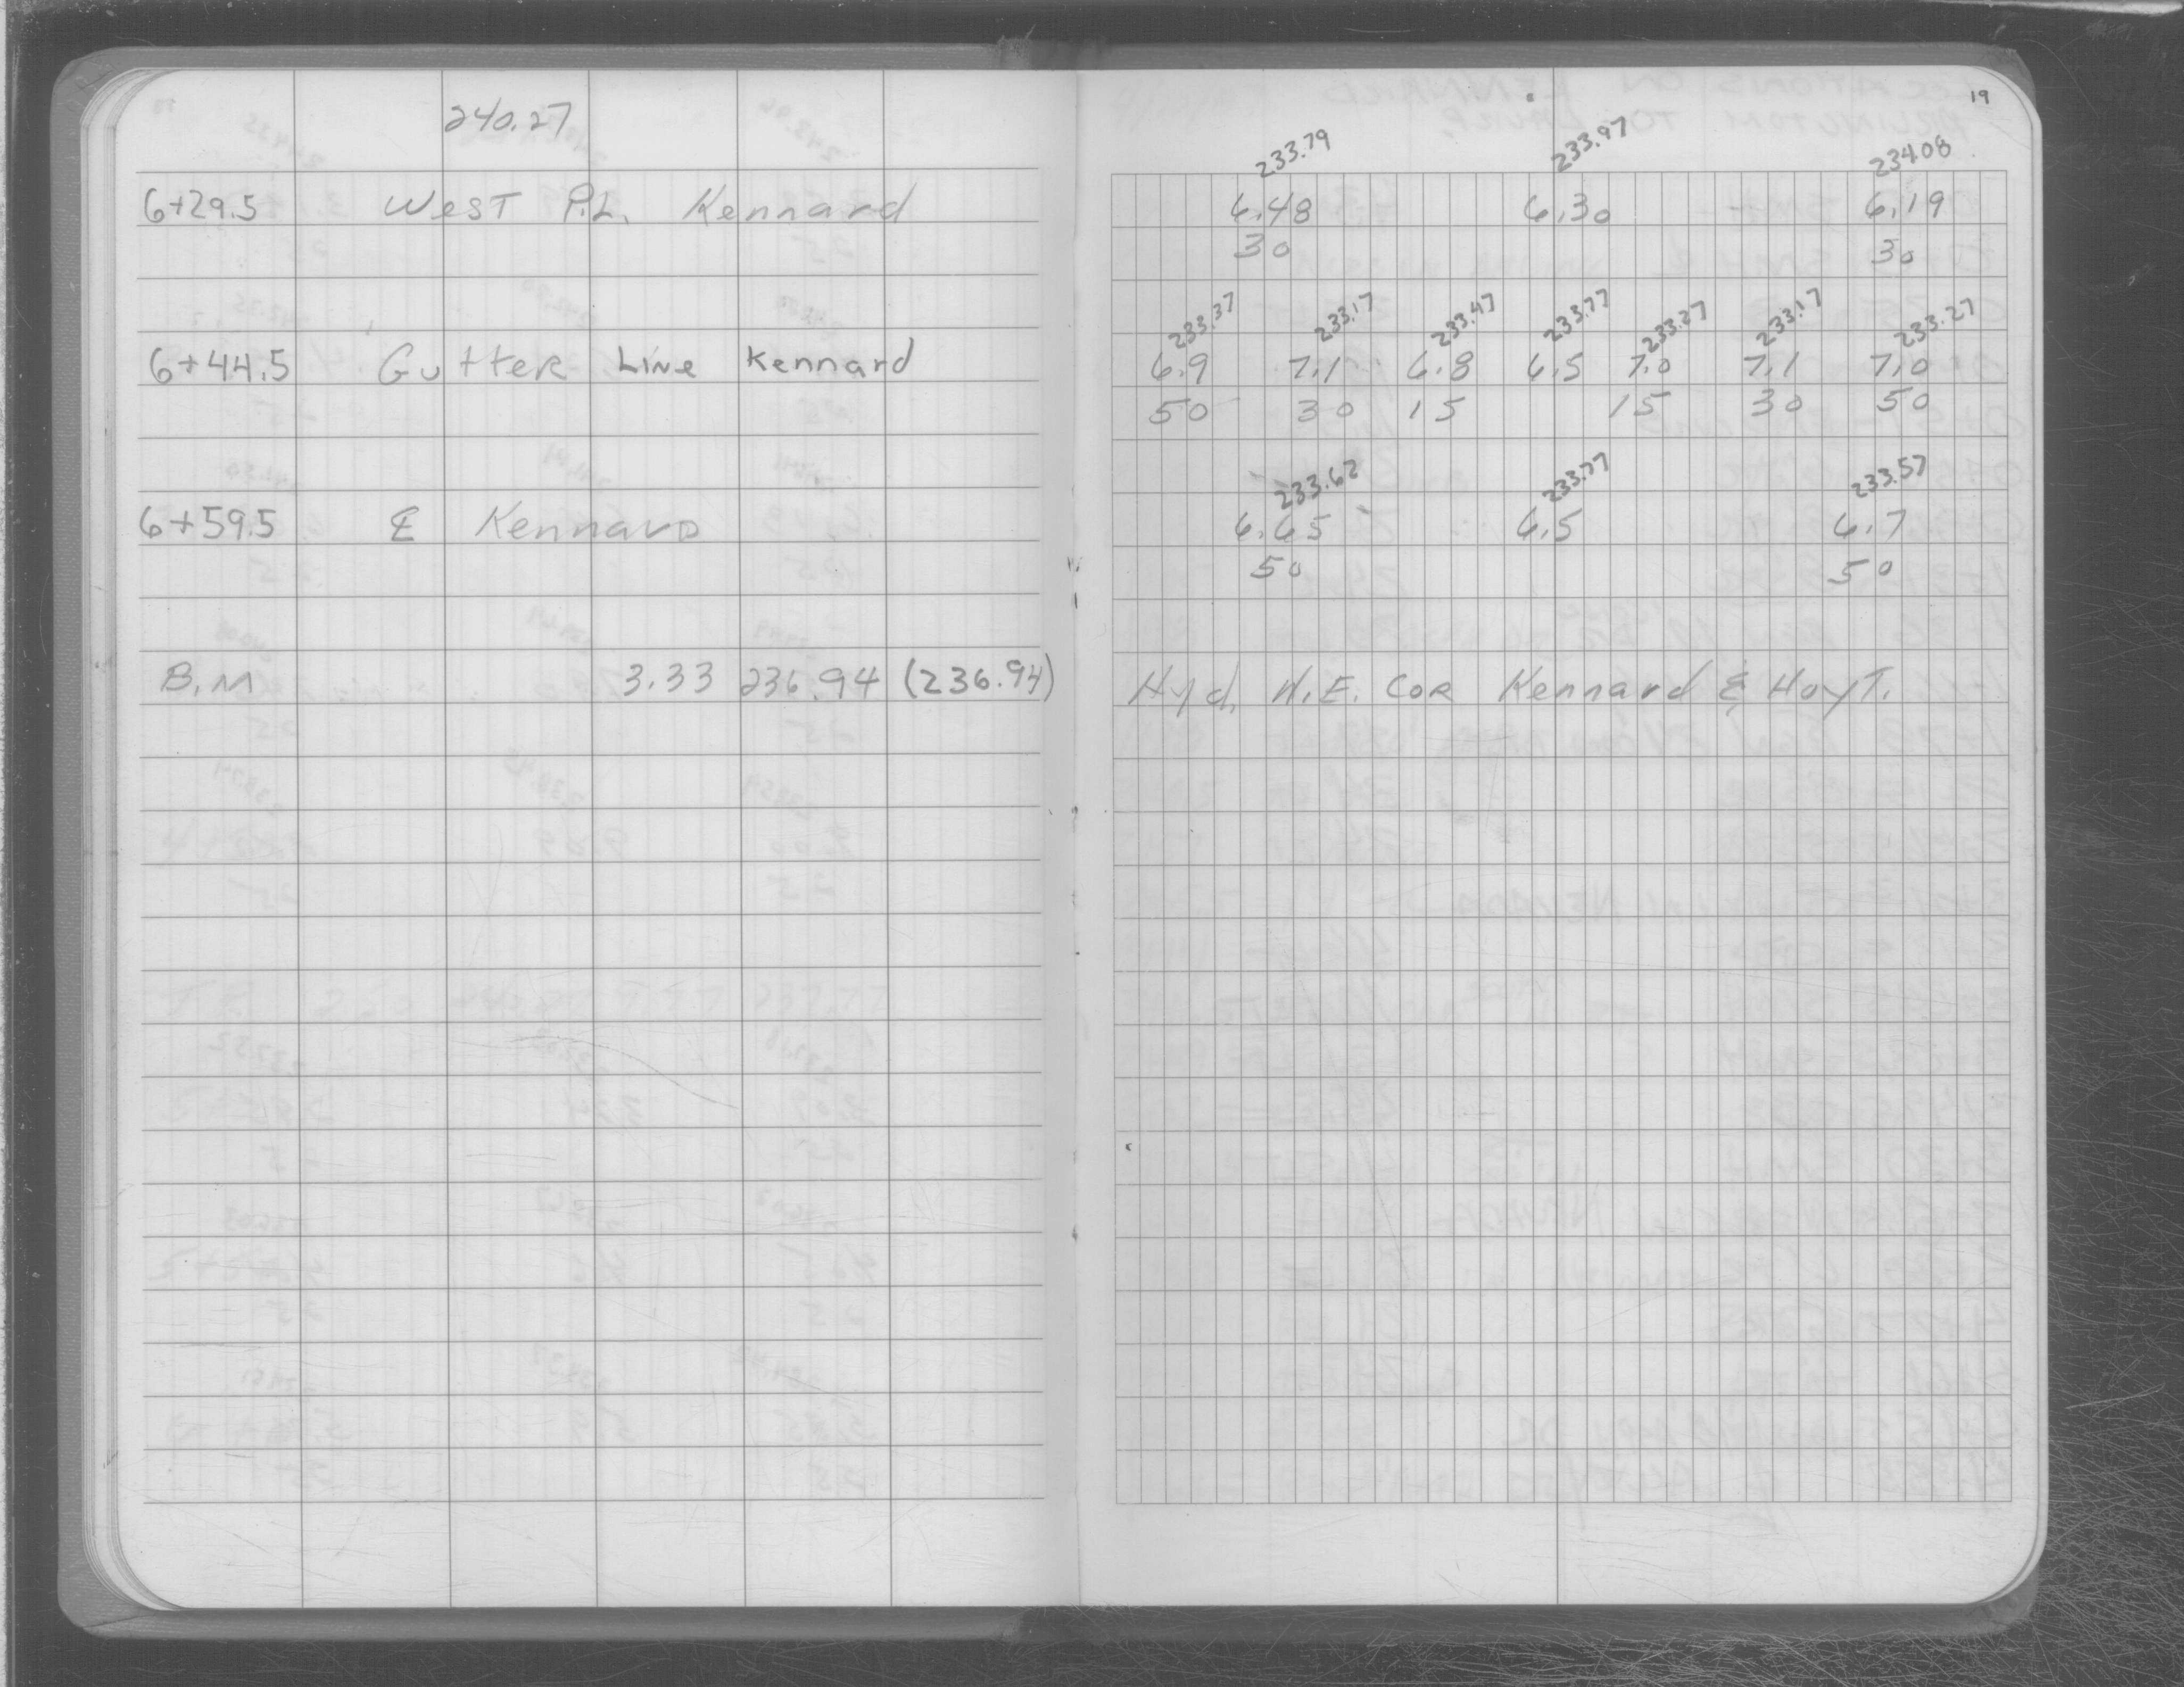 240.27
6+29.5 West P.L. Kennard
6+44.5 Gutter Line Kennard
6+59.5 ℄ Kennard
B.M 3.33 236.94 (236.94)
19
233.79 233.97 234.08
6.48 6.30 6.19
30 30
233.37 233.17 233.47 233.77 233.27 233.17 233.27
6.9 7.1 6.8 6.5 7.0 7.1 7.0
50 30 15 15 30 50
233.62 233.77 233.57
6.65 6.5 6.7
50 50
Hyd. N.E. Cor Kennard & Hoyt.